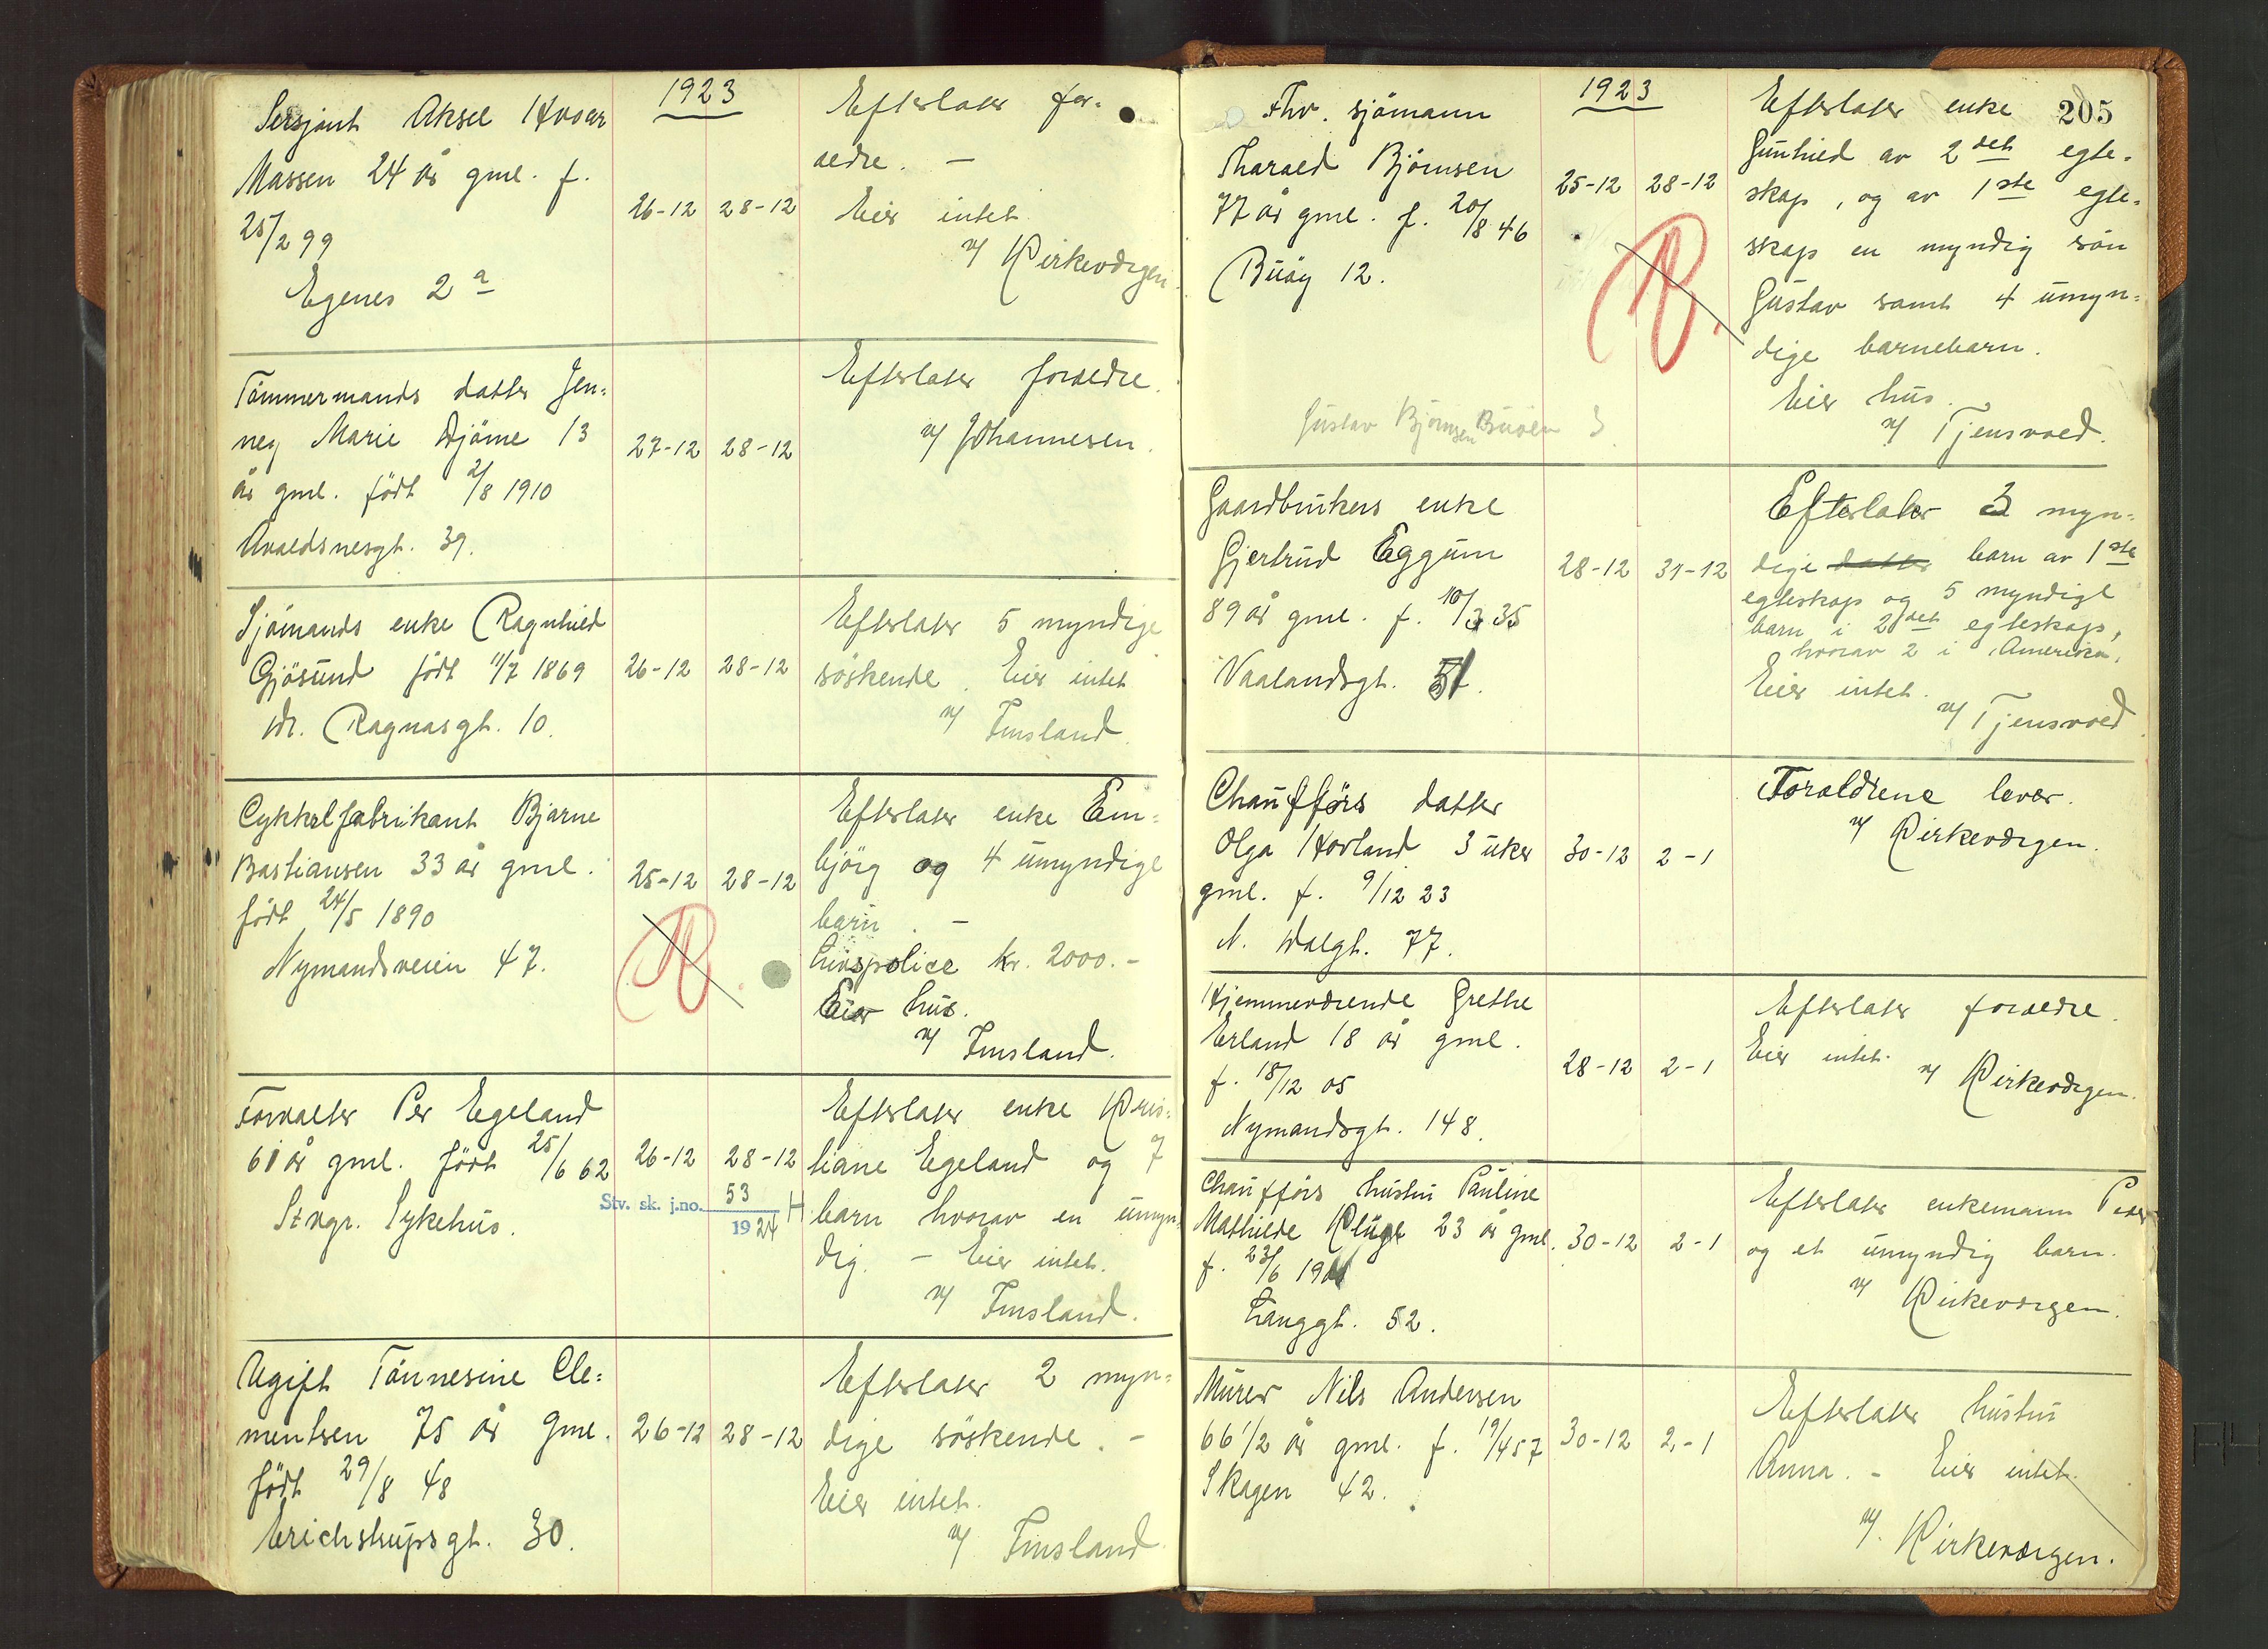 1923
Sersjant Aksel Hvoar
Massen 24 år gml. f.
25/2 99
Egenes 2 a
26-12 28-12
Efterlater for-
ældre. -
Eier intet
v/ Kirkeværgen
Tömmermands datter Jen-
ney Marie Djöme 13
år gml. född 2/8 1910
Avaldsnesgt. 39.
27-12 28-12
Efterlater forældre.
v/ Johannesen.
Sjömands enke Ragnhild
Gjösund född 11/7 1869
Dr. Ragnasgt. 10.
26-12 28-12
Efterlater 5 myndige
söskende. Eier intet
v/ Finsland.
Cykkelfabrikant Bjarne
Bastiansen 33 år gml.
född 24/5 1890
Nymandsveien 47.
25-12 28-12
Efterlater enke Em-
björg og 4 umyndige
barn. -
Livspolice kr. 2000.-
Eier hus.
v/ Finsland.
Forvalter Per Egeland
61 år gml. född 25/6 62
Stvgr. Sykehus.
26-12 28-12
Stv. sk. j.no. 53 H
1924
Efterlater enke Kris-
tiane Egeland og 7
barn hvorav en umyn-
dig. - Eier intet.
v/ Finsland.
Ugift Tönnesine Cle-
mentsen 75 år gml.
född 29/8 48
Erichstrupsgt. 30.
26-12 28-12
Efterlater 2 myn-
dige söskende. -
Eier intet.
v/ Finsland.
1923
205
Fhv. sjömann
Tharald Björnsen
77 år gml. f. 20/8 46
Buöy 12.
25-12 28-12
Gustav Björnsen Buöen 3
Efterlater enke
Gunhild av 2det egte-
skap, og av 1ste egte-
skap en myndig sön
Gustav samt 4 umyn-
dige barnebarn.
Eier hus.
v/ Tjensvold.
Gaardbrukers enke
Gjertrud Eggum
89 år gml. f. 10/3 35
Vaalandsgt. 51.
28-12 31-12
Efterlater 3 myn-
dige datter barn av 1ste
egteskap og 5 myndige
barn i 2det egteskap,
hvorav 2 i Amerika.
Eier intet.
v/ Tjensvold
Chaufförs datter
Olga Hovland 3 uker
gml. f. 9/12 23
N. Dalgt. 77.
30-12 2-1
Foraldrene lever.
v/ Kirkeværgen.
Hjemmeværende Grethe
Erland 18 år gml.
f. 18/12 05
Nymandsgt. 148.
28-12 2-1
Efterlater forældre.
Eier intet.
v/ Kirkeværgen.
Chaufförs hustru Pauline
Mathilde Kluge 23 år gml.
f. 23/6
Langgt. 52.
30-12 2-1
Efterlater enkemann Peder
og et umyndig barn.
v/ Kirkeværgen.
Murer Nils Andersen
66 1/2 år gml. f. 19/4 57
Skagen 42.
30-12 2-1
Efterlater hustru
Anna. - Eier intet.
v/ Kirkeværgen.